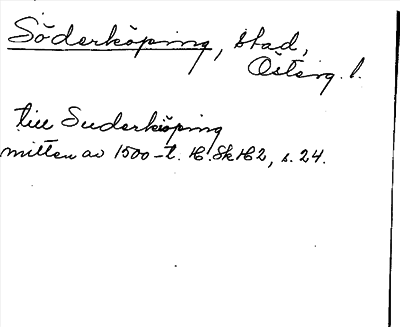 Söderköping, stad,
Österg. l.
till Suderköping
mitten av 1500-t. H.SkH2, s. 24.